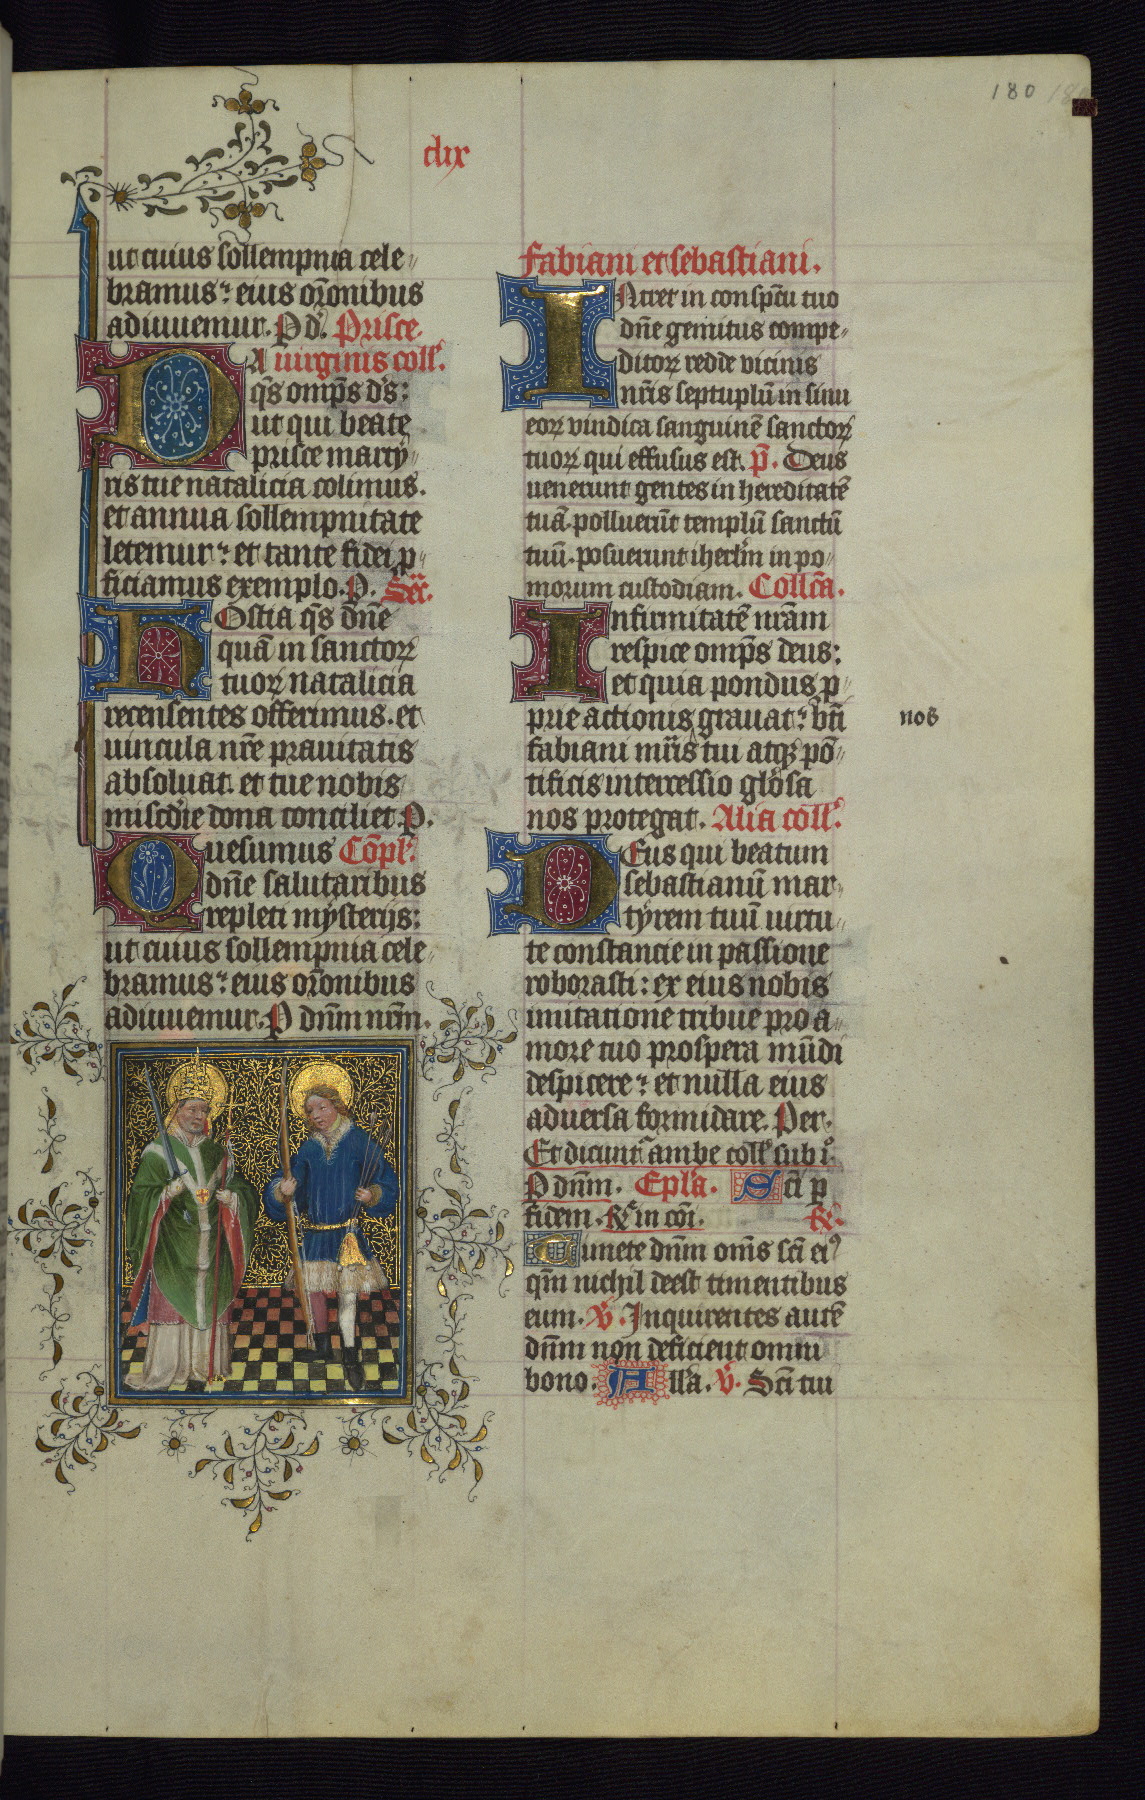 180
clix
ut cuius sollempnia cele
bramus: eius or̄onibus
adiuuemur. P d̄. Prisce
uirginis coll̄.
DA q̄s omp̄s d̄s:
ut qui beate
prisce marty
ris tue natalicia colimus.
et annua sollempnitate
letemur: et tante fidei p
ficiamus exemplo. P. Secr̄.
HOstia q̄s dn̄e
quā in sanctoꝝ
tuoꝝ natalicia
recensentes offerimus. et
uincula nr̄e prauitatis
absoluat. et tue nobis
misc̄die dona conciliet. P.
Quesumus Cōpl̄.
dn̄e salutaribus
repleti mysterijs:
ut cuius sollempnia cele
bramus: eius or̄onibus
adiuuemur. P dn̄m nr̄m.
Fabiani et sebastiani.
INtret in consp̄cu tuo
dn̄e gemitus compe
ditoꝝ redde vicinis
nr̄is septuplū in sinu
eoꝝ vindica sanguinē sanctoꝝ
tuoꝝ qui effusus est. p̄. Deus
uenerunt gentes in hereditatē
tuā. polluerūt templū sanctū
tuū. posuerunt iherl̄m in po
morum custodiam. Collc̄a.
Infirmitatē nr̄am
respice omp̄s deus:
et quia pondus p
prie actionis grauat: bt̄i
nos
fabiani mr̄is tui atqꝫ pō
tificis intercessio gl̄osa
nos protegat. Alia coll̄.
DEus qui beatum
sebastianū mar
tyrem tuū uirtu
te constancie in passione
roborasti: ex eius nobis
imitatione tribue pro a
more tuo prospera mūdi
despicere: et nulla eius
aduersa formidare. Per.
Et dicunt̄ ambe coll̄ sub i.
P dn̄m. Ep̄la. Sc̄i p
fidem. R̄ in cōi. R̄.
Timete dn̄m om̄s sc̄i eiꝰ
qm̄ nichil deest timentibus
eum. V̄. Inquirentes autē
dn̄m non deficient omni
bono. All̄a. V̄. Sc̄i tui